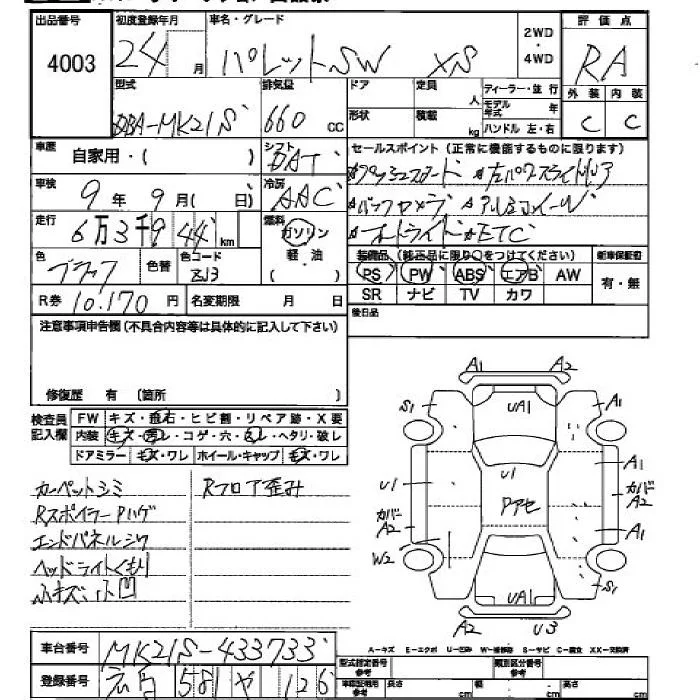 出品番号 初度登録年月 車名・グレード 2WD・4WD 評価点
4003 24 月 パレットSW XS RA
型式 排気量 ドア 定員 人 ディーラー・並行 外装 内装
DBA-MK21S 660 cc 形状 積載 kg モデル年式 年 ハンドル 左・右 C C
車歴 自家用・( ) シフト DAT セールスポイント(正常に機能するものに限ります)
車検 9年9月( 日) 冷房 AAC
走行 6万3千944 km 燃料 ガソリン・軽油・( )
バックカメラ アルミホイール
オートライト ETC
色 ブラック 色替 色コード ZJ3
装備品(純正品に限り○をつけてください) 新車保証書
PS PW ABS エアB AW 有・無
SR ナビ TV カワ
R券 10.170円 名変期限 月 日 後日品
注意事項申告欄(不具合内容等は具体的に記入して下さい)
修復歴 有 (箇所 )
検査員記入欄 FW キズ・飛石・ヒビ割・リペア跡・X要
内装 キズ・汚レ・コゲ・穴・ヘタリ・破レ
ドアミラー キズ・ワレ ホイール・キャップ キズ・ワレ
カーペットシミ Rフロア歪み
Rスポイラー Pハゲ
エンドパネルシワ
ヘッドライトくもり
A1 A2
S1 UA1 A1
U1 U1 A1
カバーA2 Pアセ カバーA2
W2 A1
UA1 S1
A2 U3
車台番号 MK21S-433733
登録番号 581 や 126
A-キズ E-エクボ U-凹み W-補修跡 S-サビ C-腐食 XX-交換済
型式指定番号 参考 類別区分番号 参考
車検証明用 参考 長さ cm 幅 cm 高さ cm